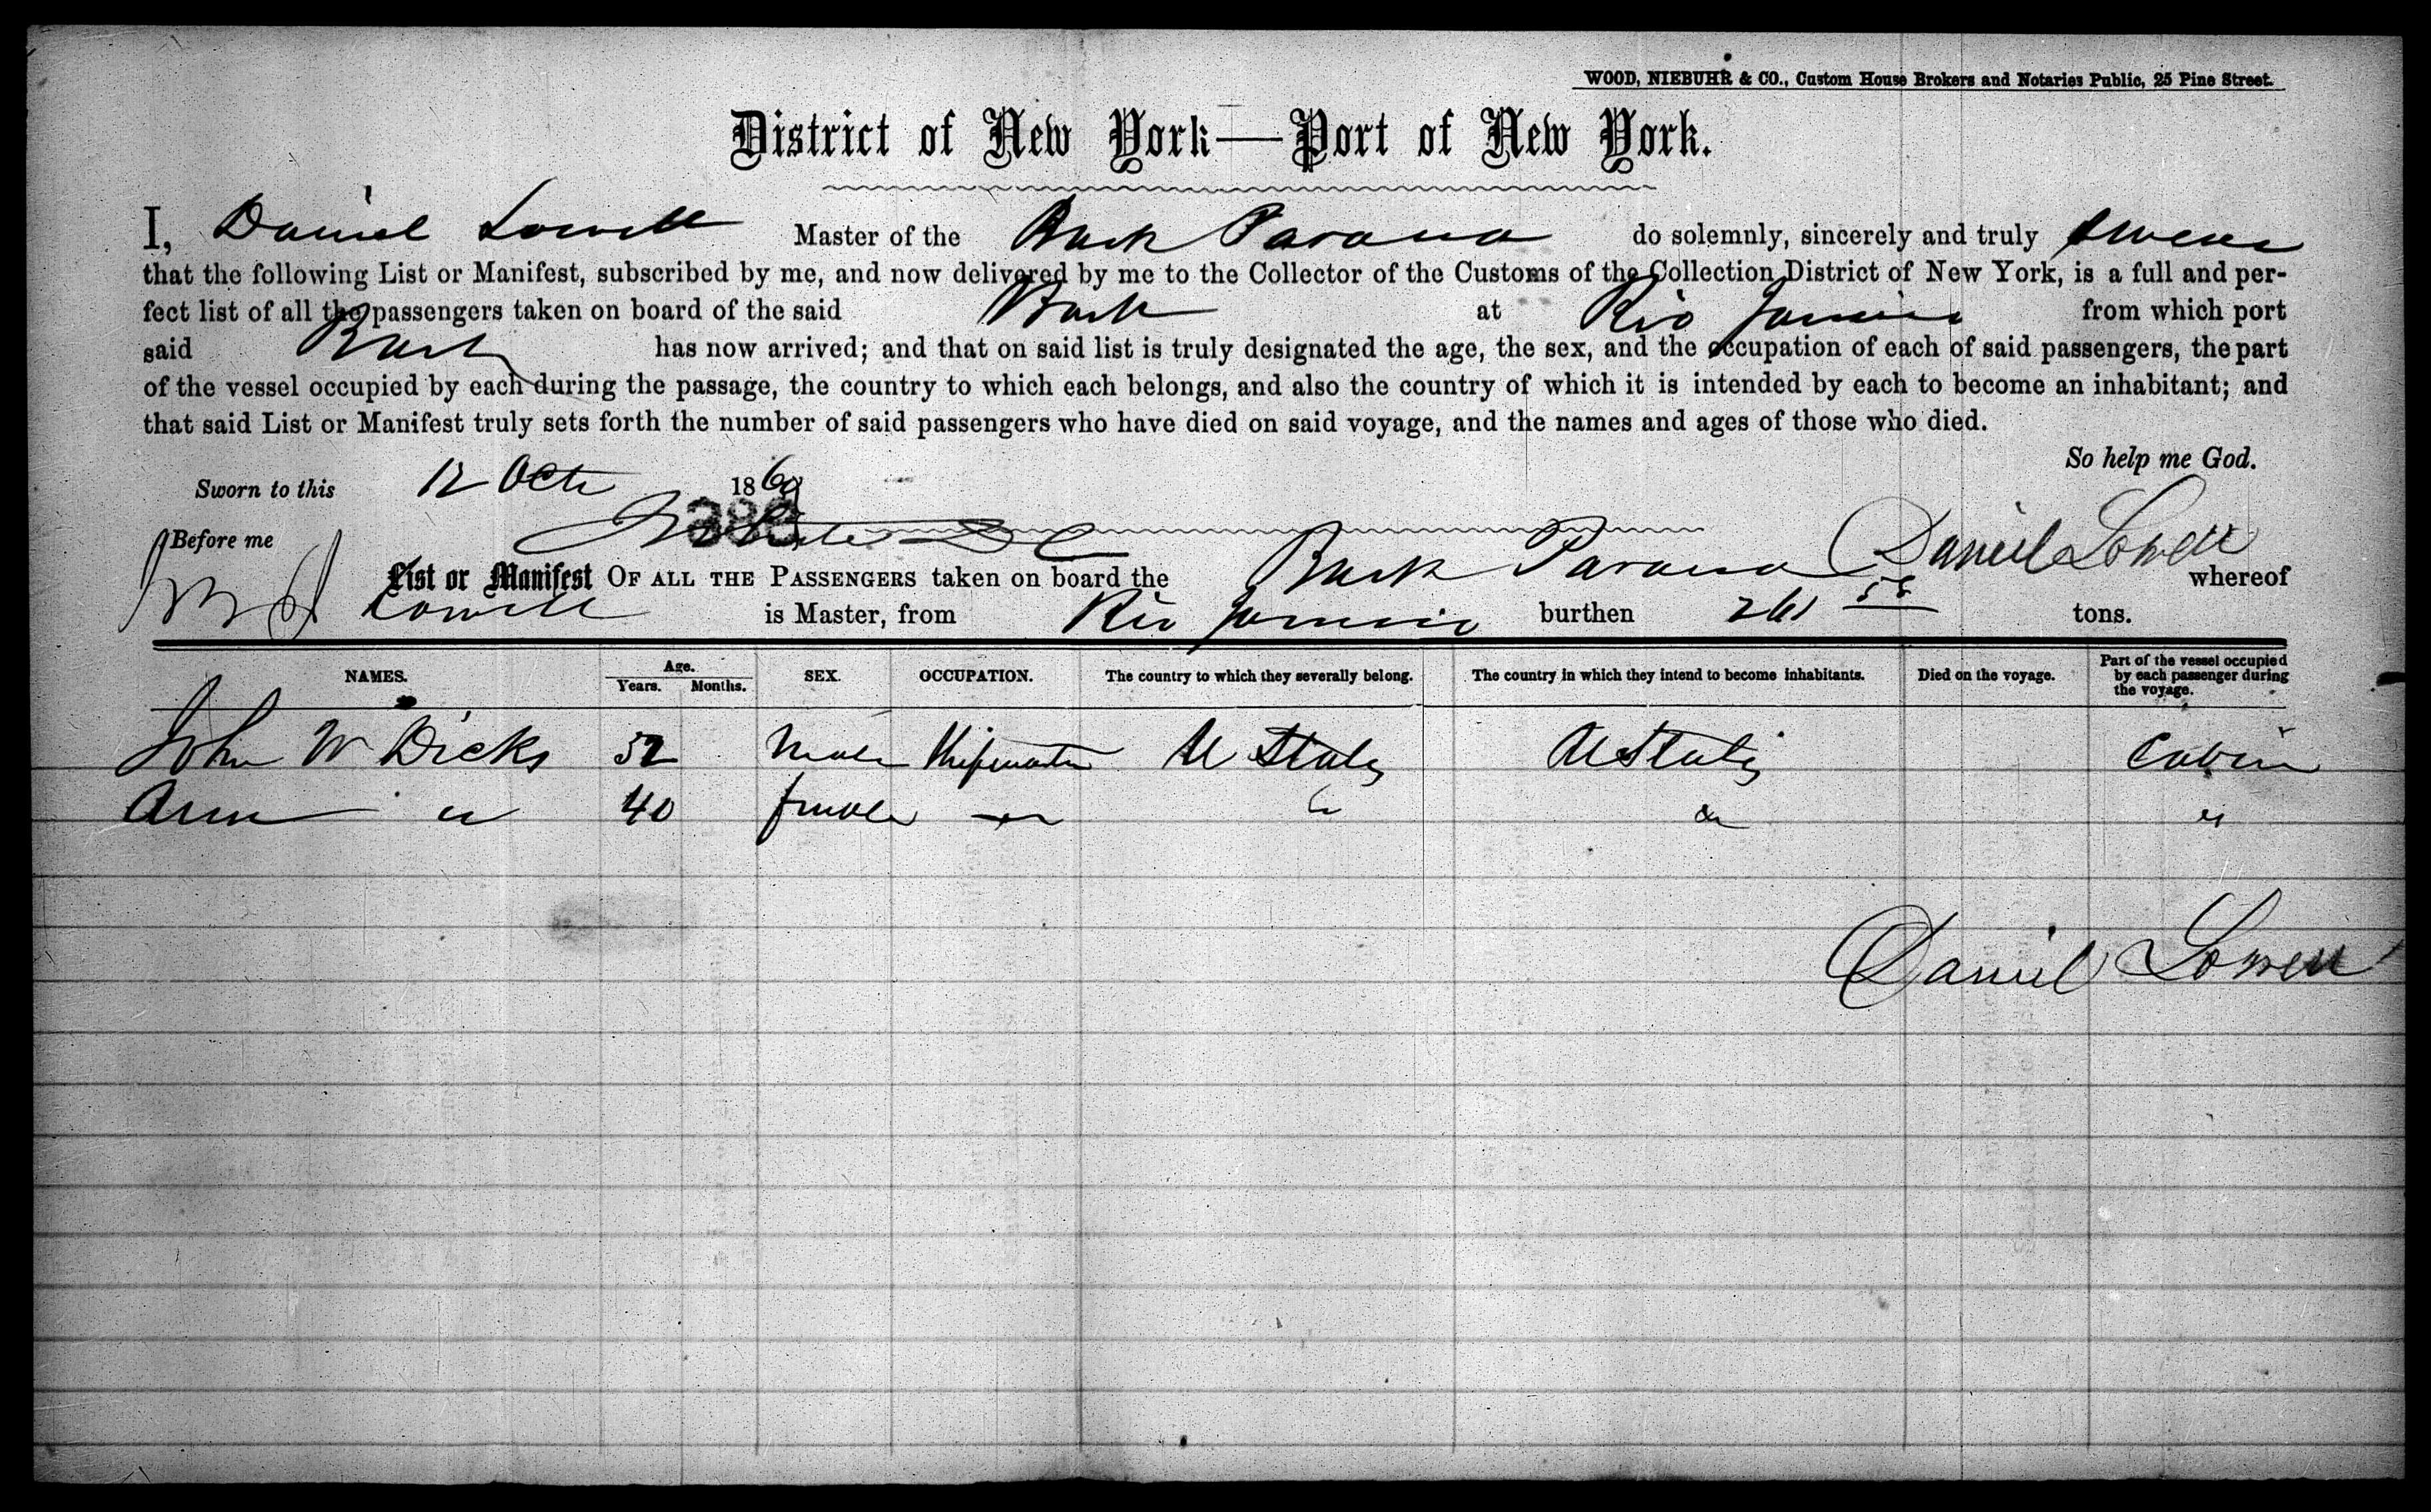 WOOD, NIEBUHR & CO., Custom House Brokers and Notaries Public, 25 Pine Street.
District of New York—Port of New York.
I, Daniel Lowell Master of the Bark Parana do solemnly, sincerely and truly swear
that the following List or Manifest, subscribed by me, and now delivered by me to the Collector of the Customs of the Collection District of New York, is a full and per-
fect list of all the passengers taken on board of the said Bark at Rio Janeiro from which port
said Bark has now arrived; and that on said list is truly designated the age, the sex, and the occupation of each of said passengers, the part
of the vessel occupied by each during the passage, the country to which each belongs, and also the country of which it is intended by each to become an inhabitant; and
that said List or Manifest truly sets forth the number of said passengers who have died on said voyage, and the names and ages of those who died.
So help me God.
Sworn to this 12 Oct 1860
Before me Daniel Lowell
List or Manifest OF ALL THE PASSENGERS taken on board the Bark Parana whereof
Lowell is Master, from Rio Janeiro burthen 261 58 tons.
NAMES. Age. Years. Months. SEX. OCCUPATION. The country to which they severally belong. The country in which they intend to become inhabitants. Died on the voyage. Part of the vessel occupied by each passenger during the voyage.
John W Dicks 52 Male Shipmaster U States U States Cabin
Ann " 40 female " " "
Daniel Lowell